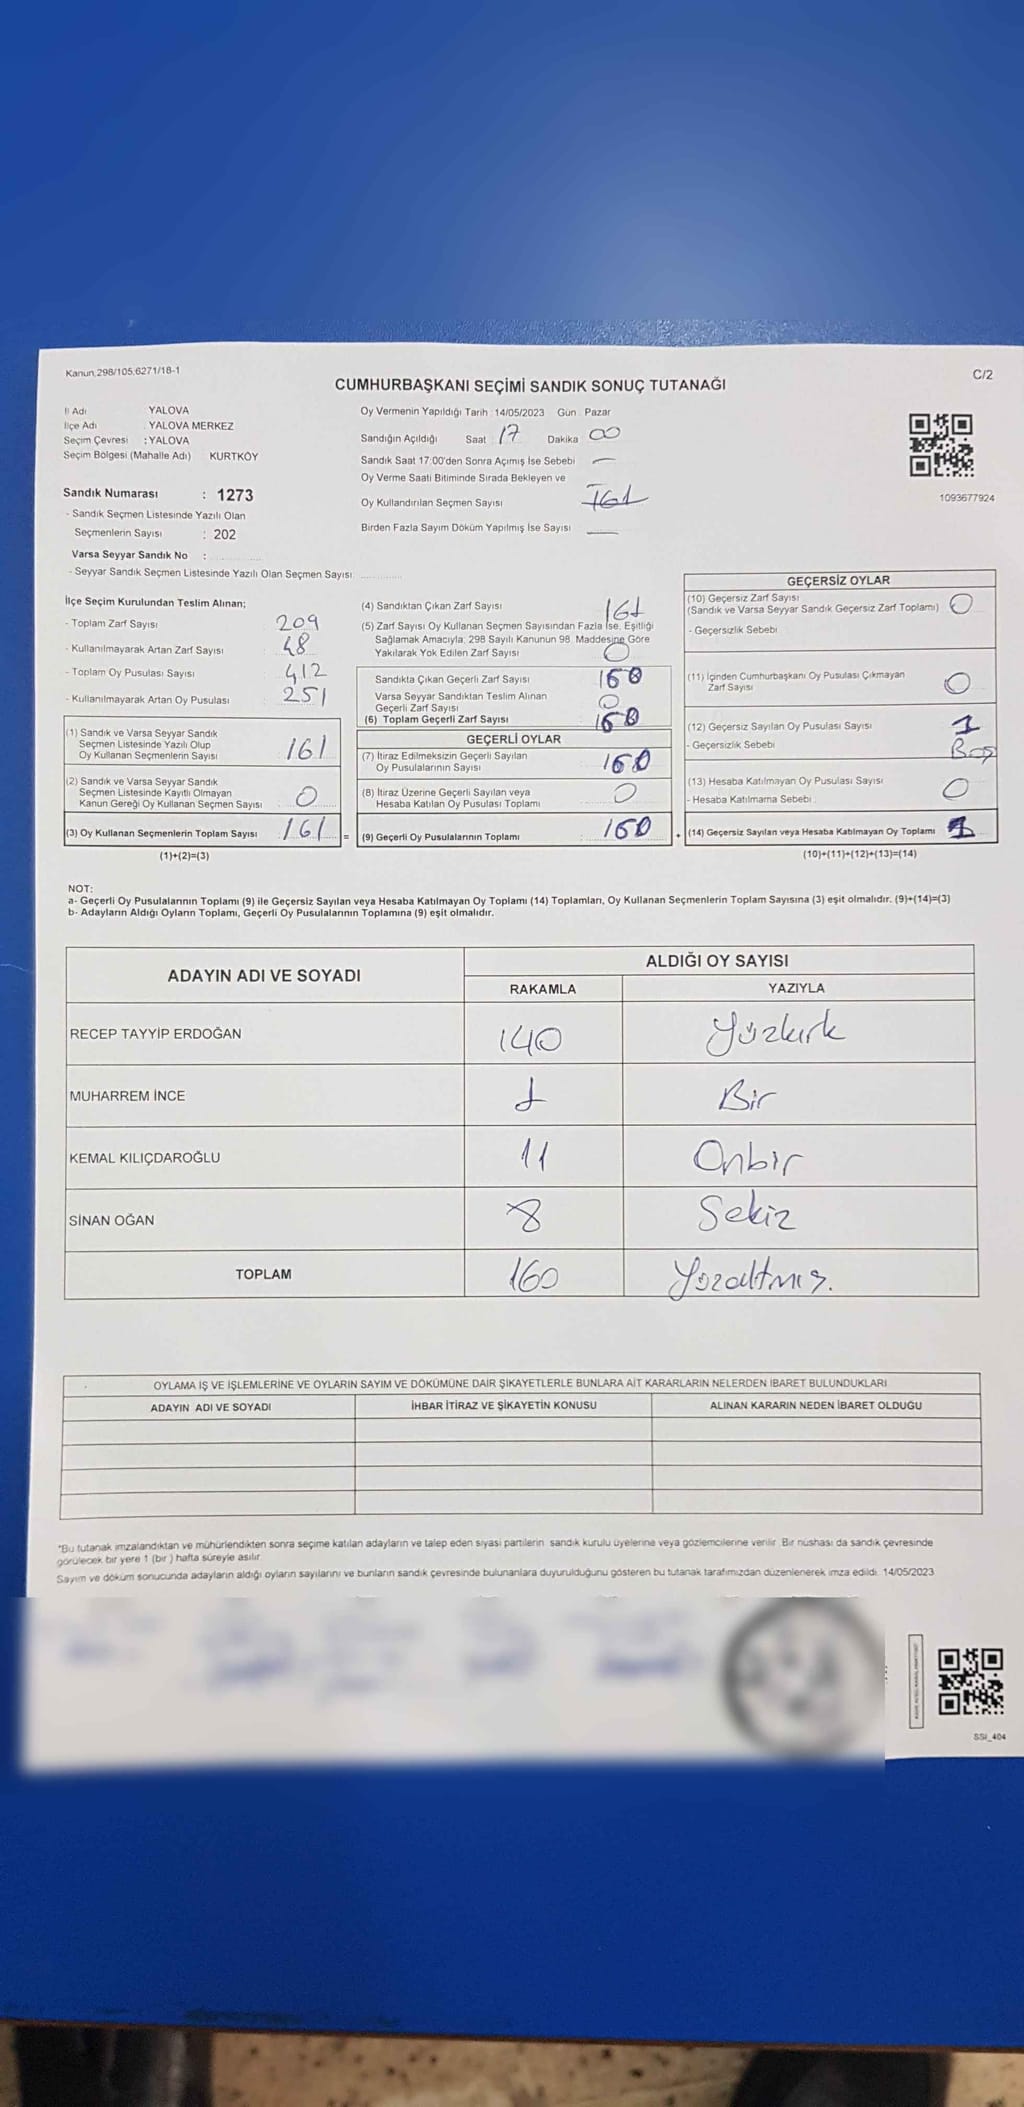 Kanun,298/105,6271/18-1
C/2
CUMHURBAŞKANI SEÇİMİ SANDIK SONUÇ TUTANAĞI
İl Adı YALOVA
İlçe Adı : YALOVA MERKEZ
Seçim Çevresi : YALOVA
Seçim Bölgesi (Mahalle Adı) KURTKÖY
Sandık Numarası : 1273
- Sandık Seçmen Listesinde Yazılı Olan
Seçmenlerin Sayısı : 202
Varsa Seyyar Sandık No :
- Seyyar Sandık Seçmen Listesinde Yazılı Olan Seçmen Sayısı:
Oy Vermenin Yapıldığı Tarih : 14/05/2023 Gün : Pazar
Sandığın Açıldığı Saat 17 Dakika 00
Sandık Saat 17:00'den Sonra Açımış İse Sebebi —
Oy Verme Saati Bitiminde Sırada Bekleyen ve
Oy Kullandırılan Seçmen Sayısı 161
Birden Fazla Sayım Döküm Yapılmış İse Sayısı —
1093677924
İlçe Seçim Kurulundan Teslim Alınan;
- Toplam Zarf Sayısı 209
- Kullanılmayarak Artan Zarf Sayısı 48
- Toplam Oy Pusulası Sayısı 412
- Kullanılmayarak Artan Oy Pusulası 251
(1) Sandık ve Varsa Seyyar Sandık
Seçmen Listesinde Yazılı Olup
Oy Kullanan Seçmenlerin Sayısı 161
(2) Sandık ve Varsa Seyyar Sandık
Seçmen Listesinde Kayıtlı Olmayan
Kanun Gereği Oy Kullanan Seçmen Sayısı 0
(3) Oy Kullanan Seçmenlerin Toplam Sayısı 161 =
(1)+(2)=(3)
(4) Sandıktan Çıkan Zarf Sayısı 161
(5) Zarf Sayısı Oy Kullanan Seçmen Sayısından Fazla İse, Eşitliği
Sağlamak Amacıyla; 298 Sayılı Kanunun 98. Maddesine Göre
Yakılarak Yok Edilen Zarf Sayısı 0
Sandıkta Çıkan Geçerli Zarf Sayısı 160
Varsa Seyyar Sandıktan Teslim Alınan
Geçerli Zarf Sayısı 0
(6) Toplam Geçerli Zarf Sayısı 160
GEÇERLİ OYLAR
(7) İtiraz Edilmeksizin Geçerli Sayılan
Oy Pusulalarının Sayısı 160
(8) İtiraz Üzerine Geçerli Sayılan veya
Hesaba Katılan Oy Pusulası Toplamı 0
(9) Geçerli Oy Pusulalarının Toplamı 160 +
GEÇERSİZ OYLAR
(10) Geçersiz Zarf Sayısı
(Sandık ve Varsa Seyyar Sandık Geçersiz Zarf Toplamı) 0
- Geçersizlik Sebebi
(11) İçinden Cumhurbaşkanı Oy Pusulası Çıkmayan
Zarf Sayısı 0
(12) Geçersiz Sayılan Oy Pusulası Sayısı 1
- Geçersizlik Sebebi Boş
(13) Hesaba Katılmayan Oy Pusulası Sayısı 0
- Hesaba Katılmama Sebebi
(14) Geçersiz Sayılan veya Hesaba Katılmayan Oy Toplamı 1
(10)+(11)+(12)+(13)=(14)
NOT:
a- Geçerli Oy Pusulalarının Toplamı (9) ile Geçersiz Sayılan veya Hesaba Katılmayan Oy Toplamı (14) Toplamları, Oy Kullanan Seçmenlerin Toplam Sayısına (3) eşit olmalıdır. (9)+(14)=(3)
b- Adayların Aldığı Oyların Toplamı, Geçerli Oy Pusulalarının Toplamına (9) eşit olmalıdır.
ADAYIN ADI VE SOYADI
ALDIĞI OY SAYISI
RAKAMLA YAZIYLA
RECEP TAYYİP ERDOĞAN 140 Yüzkırk
MUHARREM İNCE 1 Bir
KEMAL KILIÇDAROĞLU 11 Onbir
SİNAN OĞAN 8 Sekiz
TOPLAM 160 Yüzaltmış.
OYLAMA İŞ VE İŞLEMLERİNE VE OYLARIN SAYIM VE DÖKÜMÜNE DAİR ŞİKAYETLERLE BUNLARA AİT KARARLARIN NELERDEN İBARET BULUNDUKLARI
ADAYIN ADI VE SOYADI İHBAR İTİRAZ VE ŞİKAYETİN KONUSU ALINAN KARARIN NEDEN İBARET OLDUĞU
*Bu tutanak imzalandıktan ve mühürlendikten sonra seçime katılan adayların ve talep eden siyasi partilerin sandık kurulu üyelerine veya gözlemcilerine verilir. Bir nüshası da sandık çevresinde
görülecek bir yere 1 (bir ) hafta süreyle asılır.
Sayım ve döküm sonucunda adayların aldığı oyların sayılarını ve bunların sandık çevresinde bulunanlara duyurulduğunu gösteren bu tutanak tarafımızdan düzenlenerek imza edildi. 14/05/2023
SSI_404